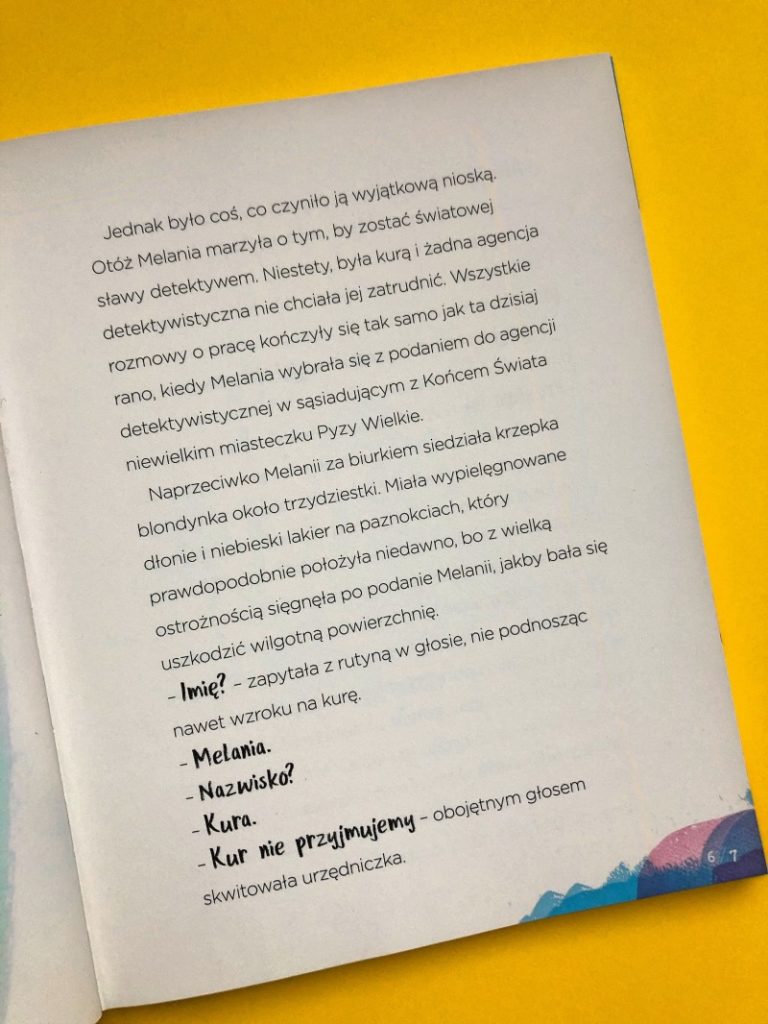 Jednak było coś, co czyniło ją wyjątkową nioską.
Otóż Melania marzyła o tym, by zostać światowej
sławy detektywem. Niestety, była kurą i żadna agencja
detektywistyczna nie chciała jej zatrudnić. Wszystkie
rozmowy o pracę kończyły się tak samo jak ta dzisiaj
rano, kiedy Melania wybrała się z podaniem do agencji
detektywistycznej w sąsiadującym z Końcem Świata
niewielkim miasteczku Pyzy Wielkie.
Naprzeciwko Melanii za biurkiem siedziała krzepka
blondynka około trzydziestki. Miała wypielęgnowane
dłonie i niebieski lakier na paznokciach, który
prawdopodobnie położyła niedawno, bo z wielką
ostrożnością sięgnęła po podanie Melanii, jakby bała się
uszkodzić wilgotną powierzchnię.
– Imię? – zapytała z rutyną w głosie, nie podnosząc
nawet wzroku na kurę.
– Melania.
– Nazwisko?
– Kura.
– Kur nie przyjmujemy – obojętnym głosem
skwitowała urzędniczka.
6 / 7